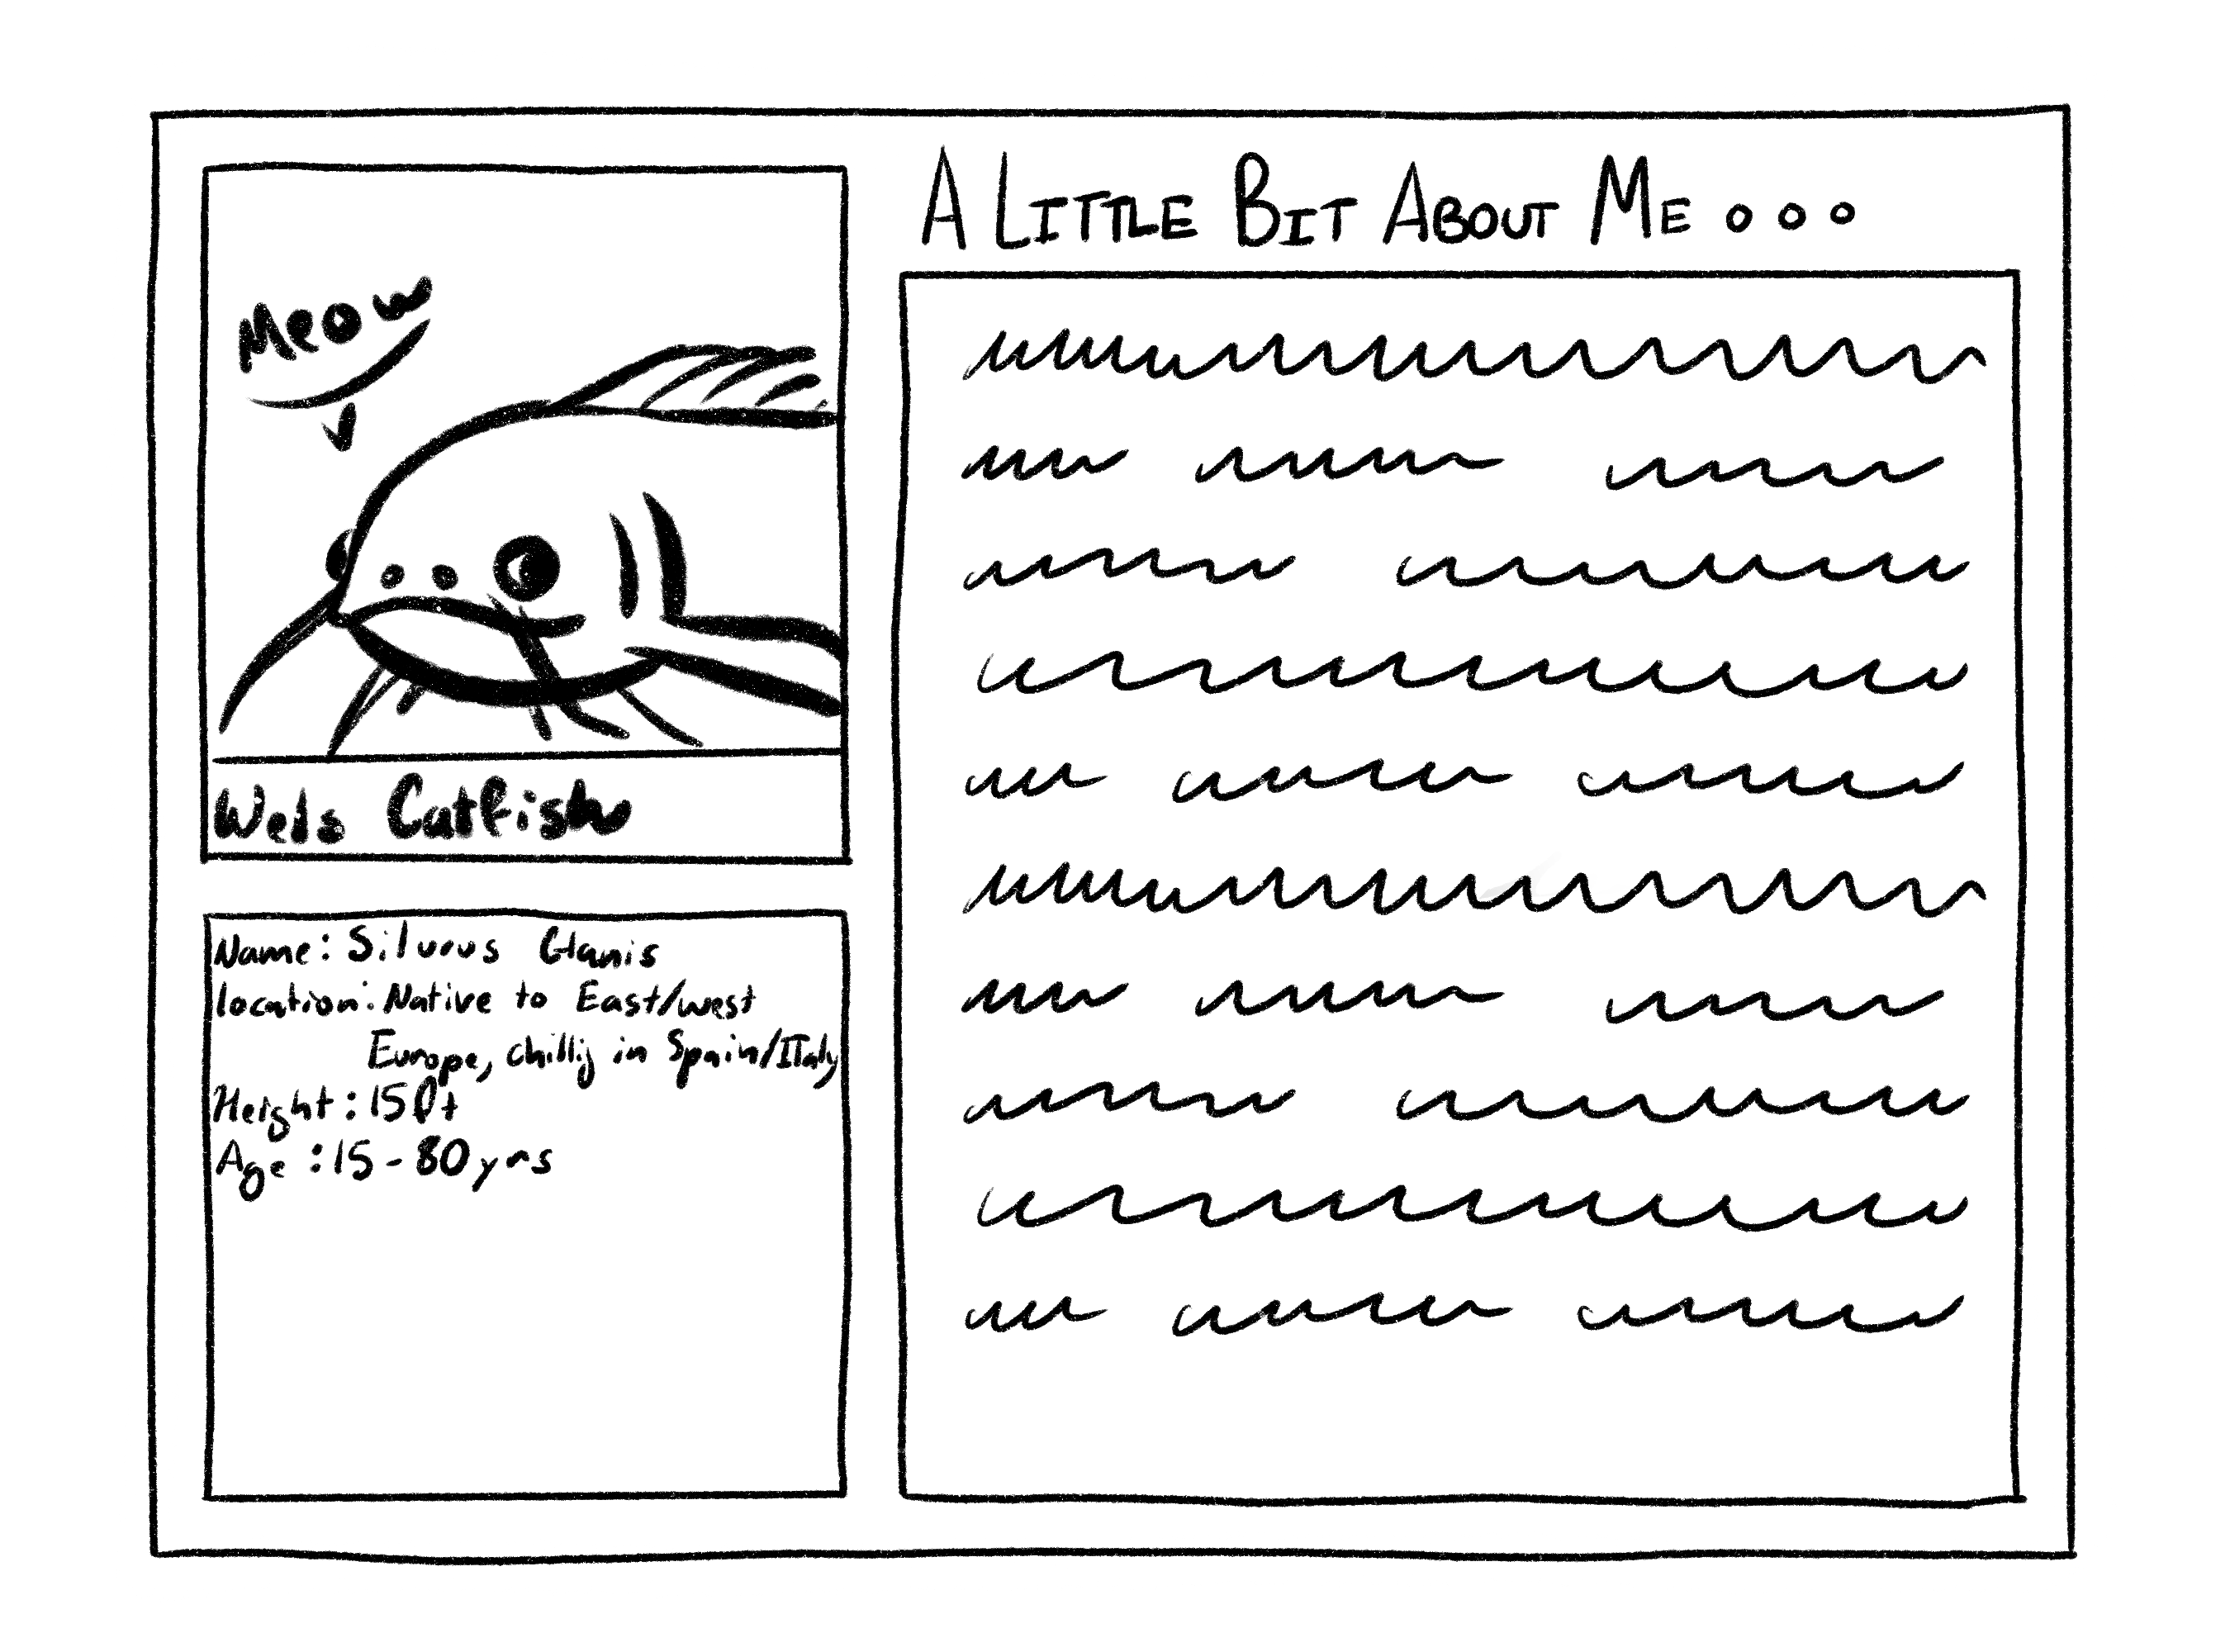 Meow
Wels Catfish
Name: Silurus Glanis
location: Native to East/west
Europe, chillij in Spain/ITaly
Height: 15ft
Age: 15-80yrs
A LITTLE BIT ABOUT ME...